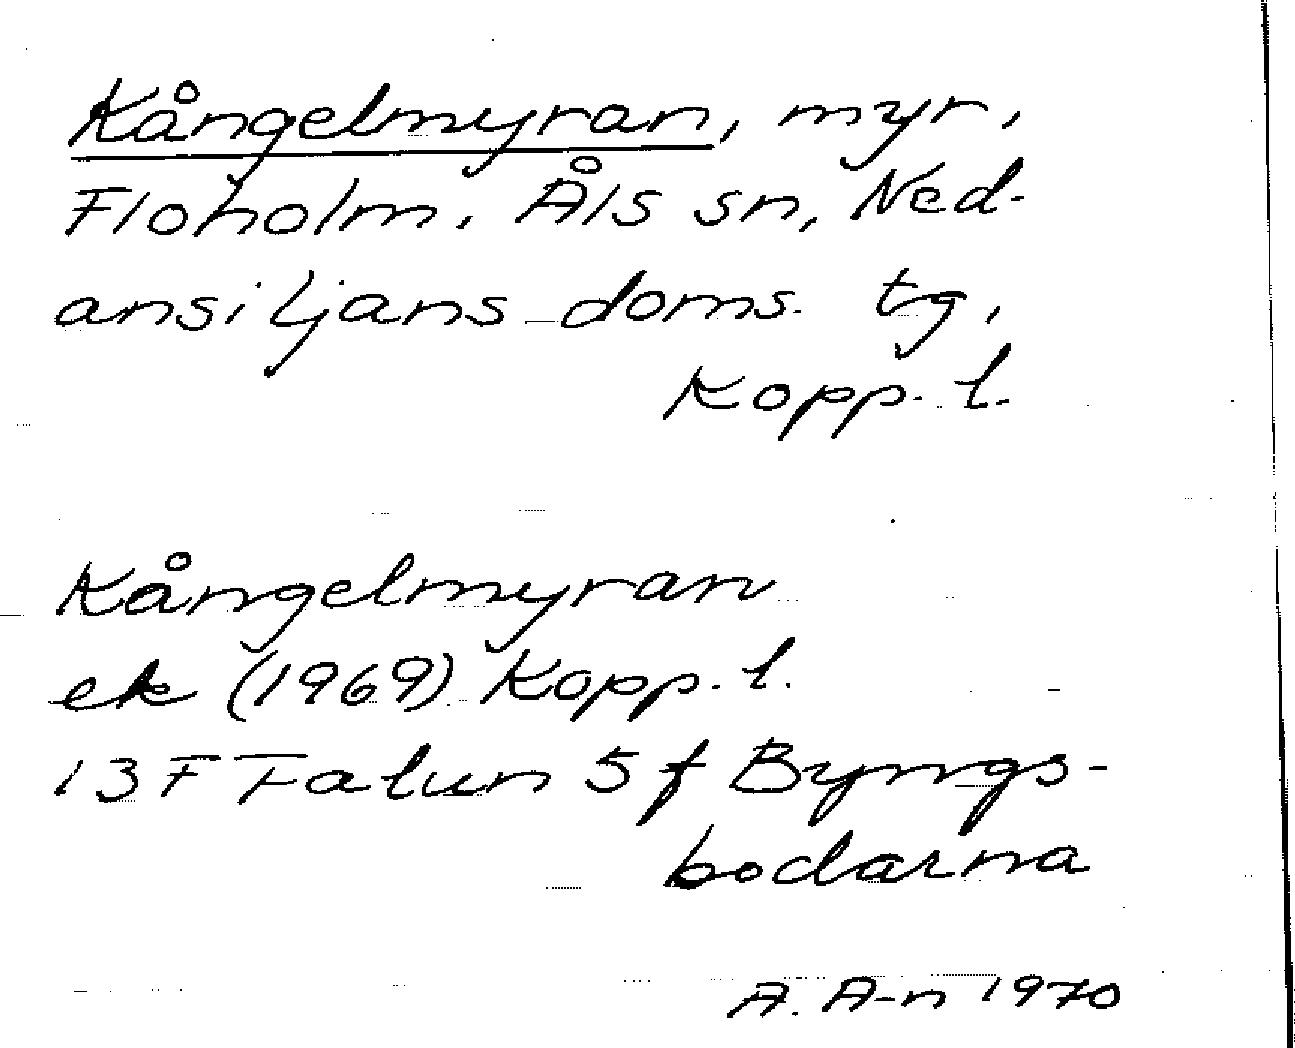 Kångelmyran, myr,
Floholm, Åls sn, Ned-
ansiljans doms. tg,
Kopp. l.
Kångelmyran
ek (1969) Kopp. l.
13F Falun 5f Byngs-
bodarna
A. A-n 1970